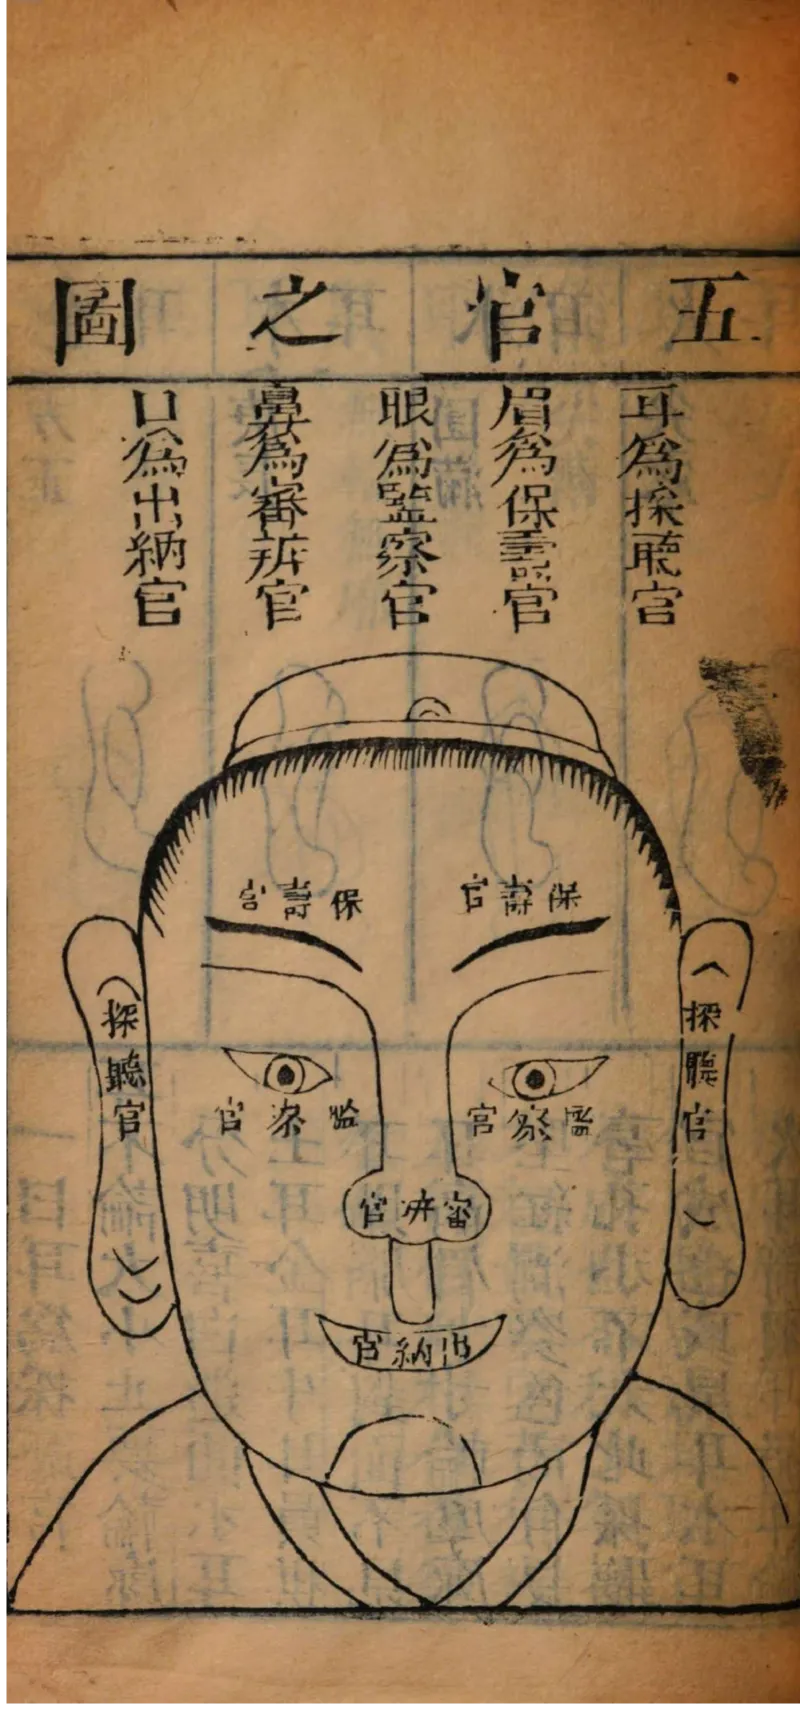 五官之圖
耳爲採聽官
眉爲保壽官
眼爲監察官
鼻爲審辨官
口爲出納官
保壽官
保壽官
探聽官
探聽官
監察官
监察官
審辨官
出納官